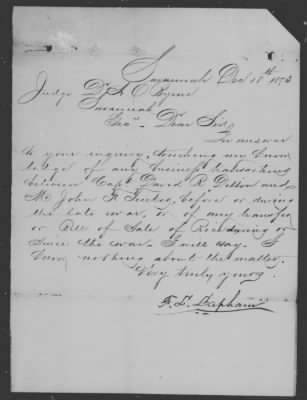 Savannah Dec 18th 1873
Judge D. A. O Byrne
Savannah
Geo" Dear Sir,
In answer
to your inquiry, touching my know
ledge of any business transactions
between Capt David R. Dillon and
Mr John F. before or during
the late war, or of any transfer
or Bill of Sale of or
since the war. I will say. I
know nothing about the matter.
Very truly yours.
F. L. Lapham